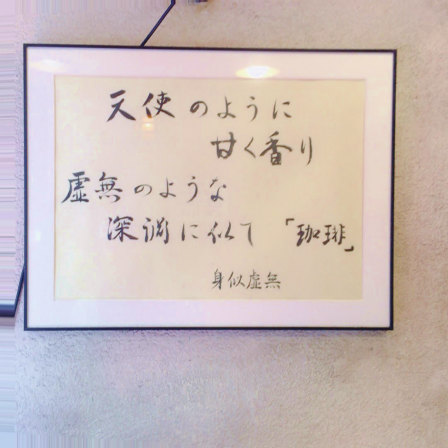 天使のように
甘く香り
虚無のような
深渊に似て「珈琲」
身似虚無